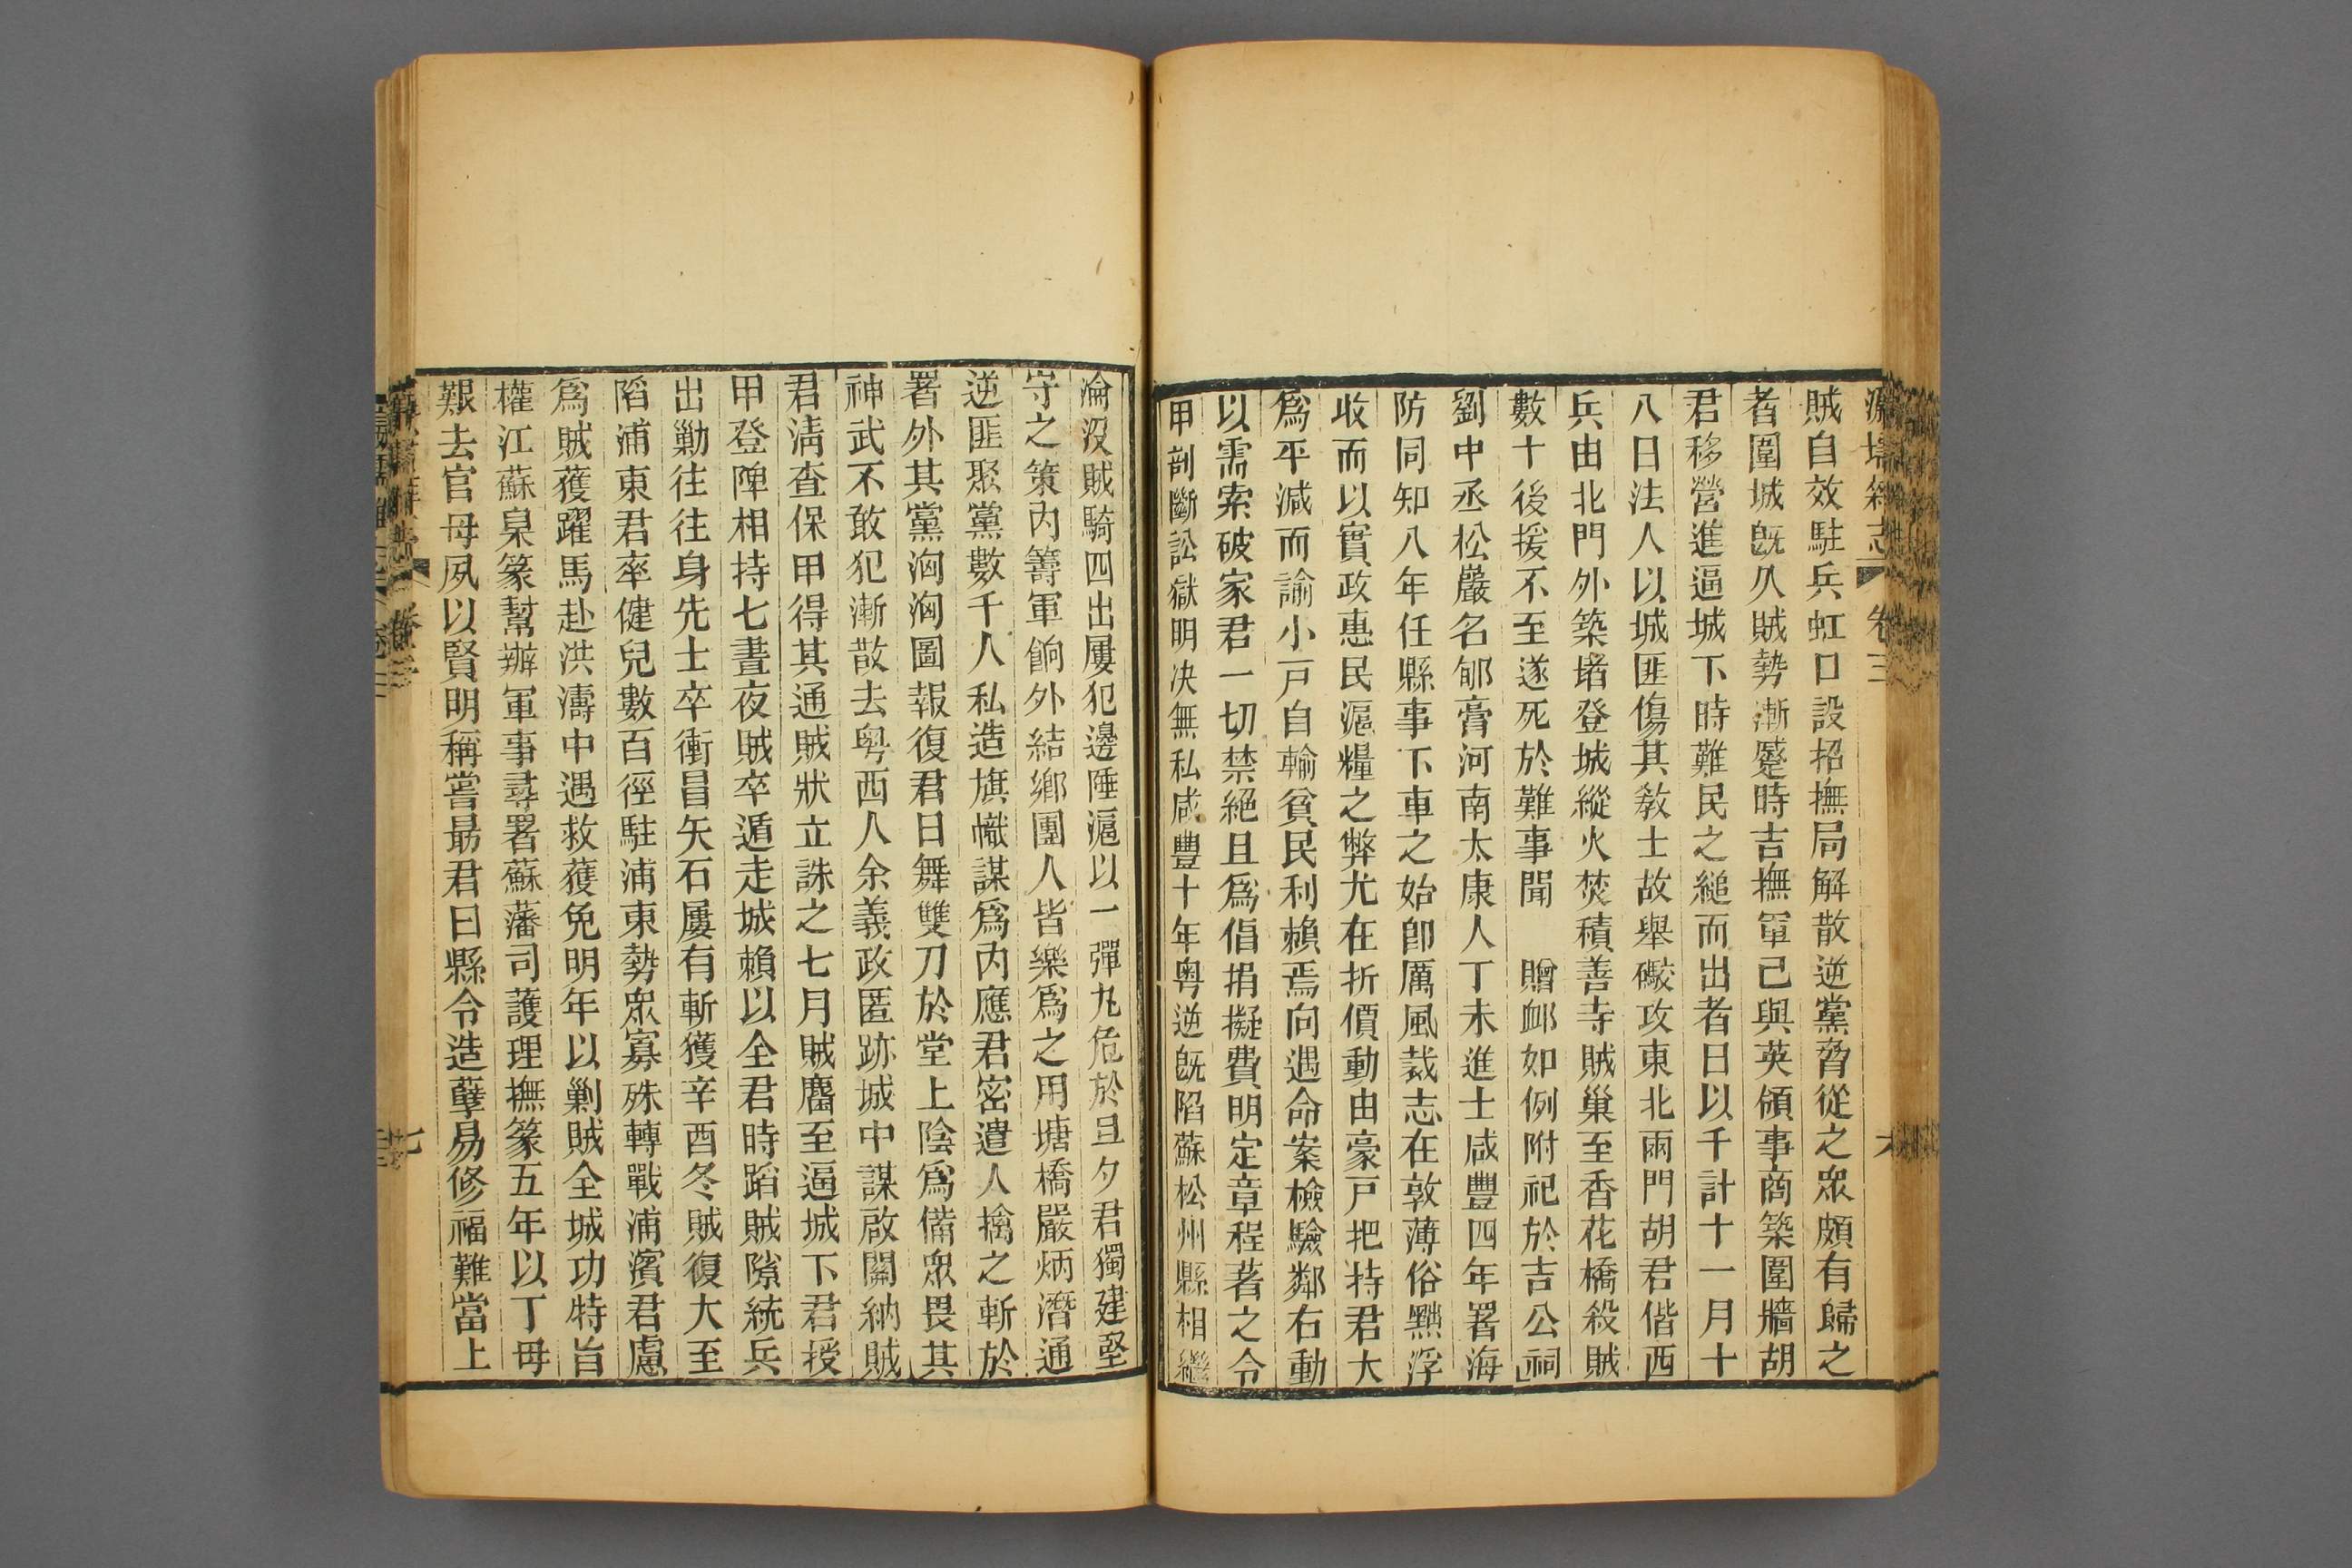 卷三
賊自效駐兵虹口設招撫局解散逆黨脅從之眾頗有歸之
者圍城旣久賊勢漸蹙時吉撫軍已與英領事商築圍牆胡
君移營進逼城下時難民之縋而出者日以千計十一月十
八日法人以城匪傷其教士故舉礮攻東北兩門胡君偕西
兵由北門外築堵登城縱火焚積善寺賊巢至香花橋殺賊
數十後援不至遂死於難事聞　贈卹如例附祀於吉公祠
劉中丞松巖名郇膏河南太康人丁未進士咸豐四年署海
防同知八年任縣事下車之始卽厲風裁志在敦薄俗黜浮
收而以實政惠民滬糧之弊尤在折價動由豪戸把持君大
爲平減而諭小戸自輸貧民利賴焉向遇命案檢驗鄰右動
以需索破家君一切禁絕且爲倡捐擬費明定章程著之令
甲剖斷訟獄明決無私咸豐十年粤逆旣陷蘇松州縣相繼
淪沒賊騎四出屢犯邊陲滬以一彈丸危於旦夕君獨建堅
守之策內籌軍餉外結鄉團人皆樂爲之用塘橋嚴炳潛通
逆匪聚黨數千人私造旗幟謀爲內應君密遣人擒之斬於
署外其黨洶洶圖報復君日舞雙刀於堂上陰爲備眾畏其
神武不敢犯漸散去粤西人余義政匿跡城中謀啟關納賊
君淸查保甲得其通賊狀立誅之七月賊麕至逼城下君授
甲登陴相持七晝夜賊卒遁走城賴以全君時蹈賊隙統兵
出勦往往身先士卒衝冒矢石屢有斬獲辛酉冬賊復大至
陷浦東君率健兒數百徑駐浦東勢眾寡殊轉戰浦濱君慮
爲賊獲躍馬赴洪濤中遇救獲免明年以剿賊全城功特旨
權江蘇臬篆幫辦軍事尋署蘇藩司護理撫篆五年以丁母
艱去官母夙以賢明稱嘗最君曰縣令造孽易修福難當上
七